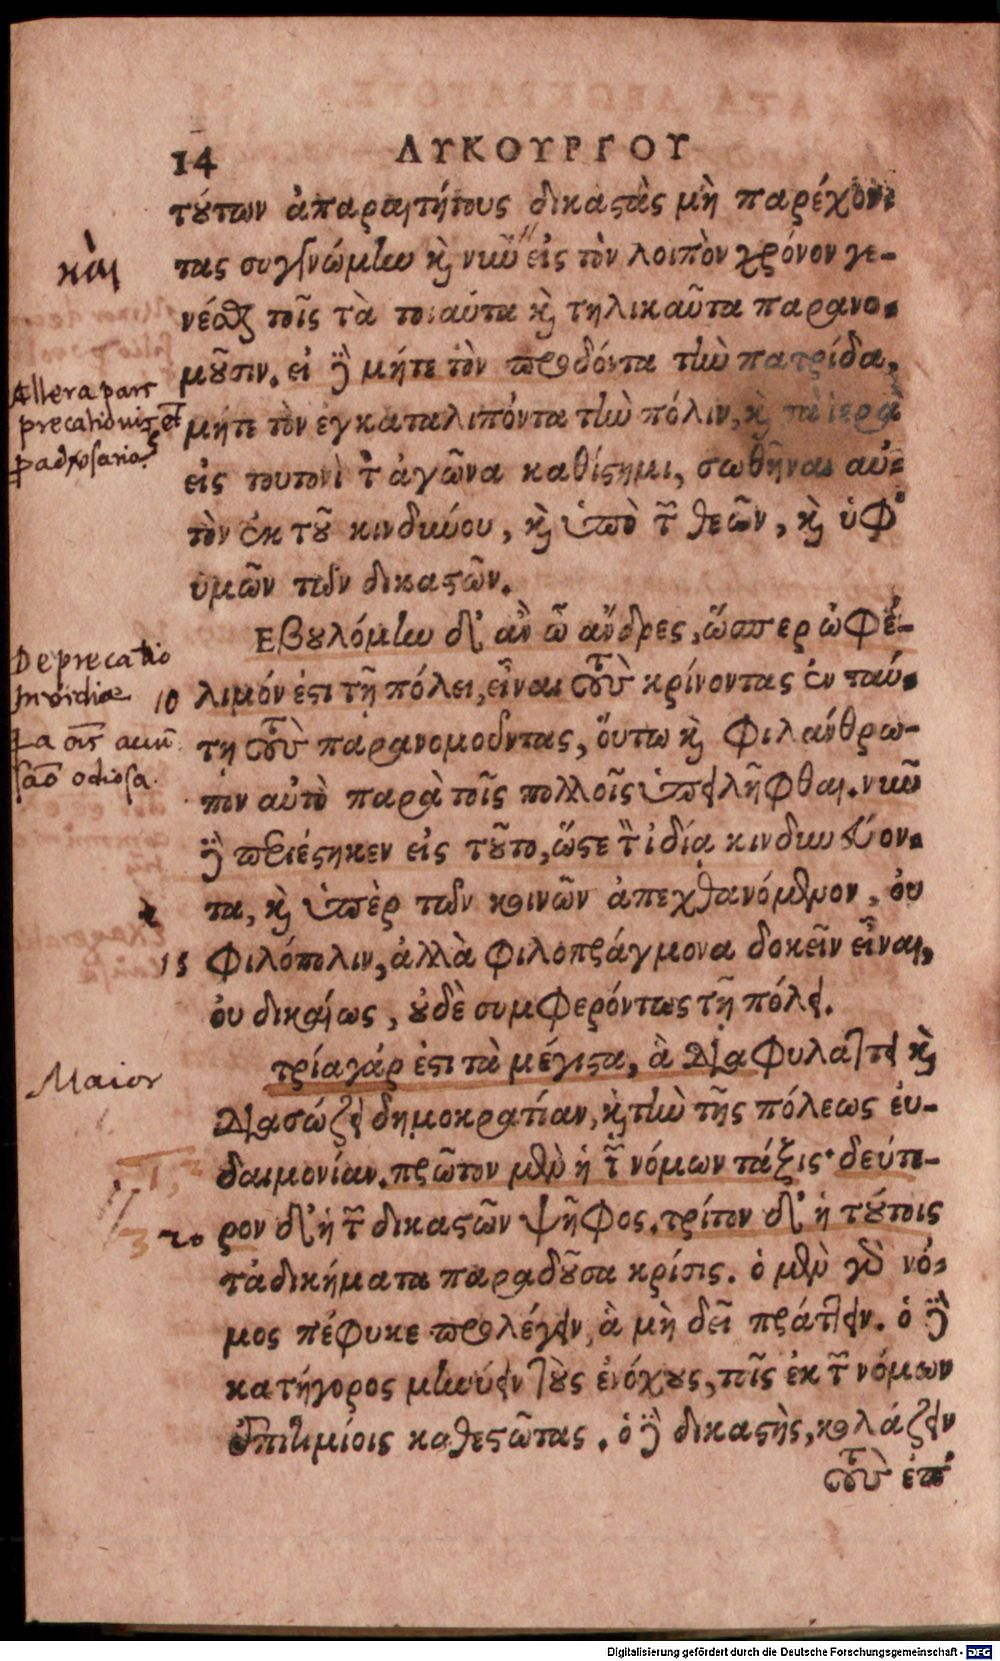 14 ΛΥΚΟΥΡΓΟΥ
τούτων ἀπαραιτήτους δικαστὰς μὴ παρέχον-
τας συγγνώμην καὶ νῦν εἰς τὸν λοιπὸν χρόνον γε-
νέσθαι τοῖς τὰ τοιαῦτα καὶ τηλικαῦτα παρανο-
μοῦσιν. εἰ δὲ μήτε τὸν προδόντα τὴν πατρίδα,
μήτε τὸν ἐγκαταλιπόντα τὴν πόλιν, καὶ τὰ ἱερὰ
εἰς τουτονὶ τὸν ἀγῶνα καθίστημι, σωθῆναι αὐ-
τὸν ἐκ τοῦ κινδύνου, καὶ ὑπὸ τῶν θεῶν, καὶ ὑφ'
ὑμῶν τῶν δικαστῶν.
Εβουλόμην δ' ἂν ὦ ἄνδρες, ὥσπερ ὠφέ-
λιμόν ἐστι τῇ πόλει, εἶναι τοὺς κρίνοντας ἐν ταύ-
τῃ τοὺς παρανομοῦντας, οὕτω καὶ φιλάνθρω-
πον αὐτὸ παρὰ τοῖς πολλοῖς ὑπειλῆφθαι. νῦν
δὲ περιέστηκεν εἰς τοῦτο, ὥστε τὸν ἰδίᾳ κινδυνεύον-
τα, καὶ ὑπὲρ τῶν κοινῶν ἀπεχθανόμενον, οὐ
φιλόπολιν, ἀλλὰ φιλοπράγμονα δοκεῖν εἶναι,
οὐ δικαίως, οὐδὲ συμφερόντως τῇ πόλει.
τρία γάρ ἐστι τὰ μέγιστα, ἃ διαφυλάττει καὶ
διασώζει δημοκρατίαν, καὶ τὴν τῆς πόλεως εὐ-
δαιμονίαν. πρῶτον μὲν ἡ τῶν νόμων τάξις· δεύτε-
ρον δ' ἡ τῶν δικαστῶν ψῆφος. τρίτον δ' ἡ τούτοις
τἀδικήματα παραδοῦσα κρίσις. ὁ μὲν γὰρ νό-
μος πέφυκε προλέγειν, ἃ μὴ δεῖ πράττειν. ὁ δὲ
κατήγορος μηνύειν τοὺς ἐνόχους, τοῖς ἐκ τῶν νόμων
ἐπιτιμίοις καθεστῶτας. ὁ δὲ δικαστὴς, κολάζειν
τοὺς ἐπ'
καὶ
Altera pars
precationis et
Deprecatio
invidiae
odiosa.
10
15
Maior
20
3
Digitalisierung gefördert durch die Deutsche Forschungsgemeinschaft - DFG